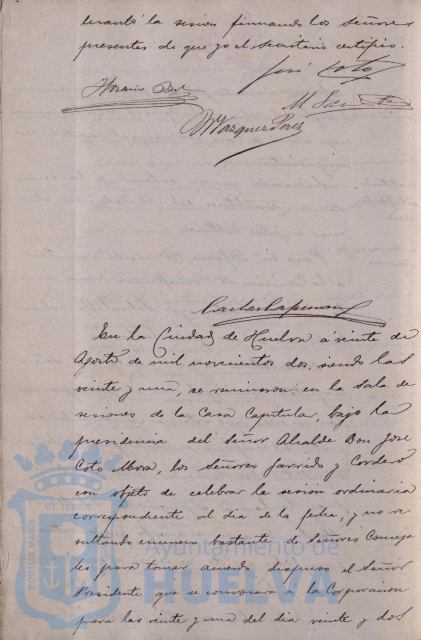 levantó la sesión firmando los Señores
presentes de que yo el Secretario certifico.
José Coto
Horacio Bel
M Vazquez Perez
Carlos
En la Ciudad de Huelva á veinte de
Agosto de mil novecientos dos, siendo las
veinte y una, se reunieron en la Sala de
sesiones de la Casa Capitular, bajo la
presidencia del Señor Alcalde Don José
Coto Mora, los Señores Garrido y Cordero
con objeto de celebrar la sesión ordinaria
correspondiente al dia de la fecha; y no re
sultando número bastante de Señores Conceja
les para tomar acuerdo dispuso el Señor
Presidente que se convocara á la Corporacion
para las veinte y una del dia veinte y dos
Ayuntamiento de
HUELVA
PORTUS MARIS
ET TERRÆ